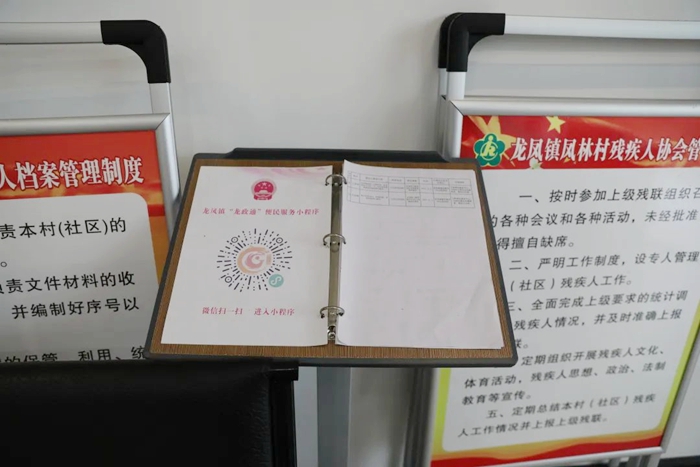 人档案管理制度
责本村(社区)的
负责文件材料的收
并编制好序号以
的保管、利用、统
龙凤镇“龙政通”便民服务小程序
微信扫一扫 进入小程序
龙凤镇凤林村残疾人协会管
一、按时参加上级残联组织召
的各种会议和各种活动，未经批准
得擅自缺席。
二、严明工作制度，设专人管理
（社区）残疾人工作。
三、全面完成上级要求的统计调
残疾人情况，并及时准确上报
联。
定期组织开展残疾人文化、
体育活动，残疾人思想、政治、法制
教育等宣传。
五、定期总结本村（社区）残疾
人工作情况并上报上级残联。